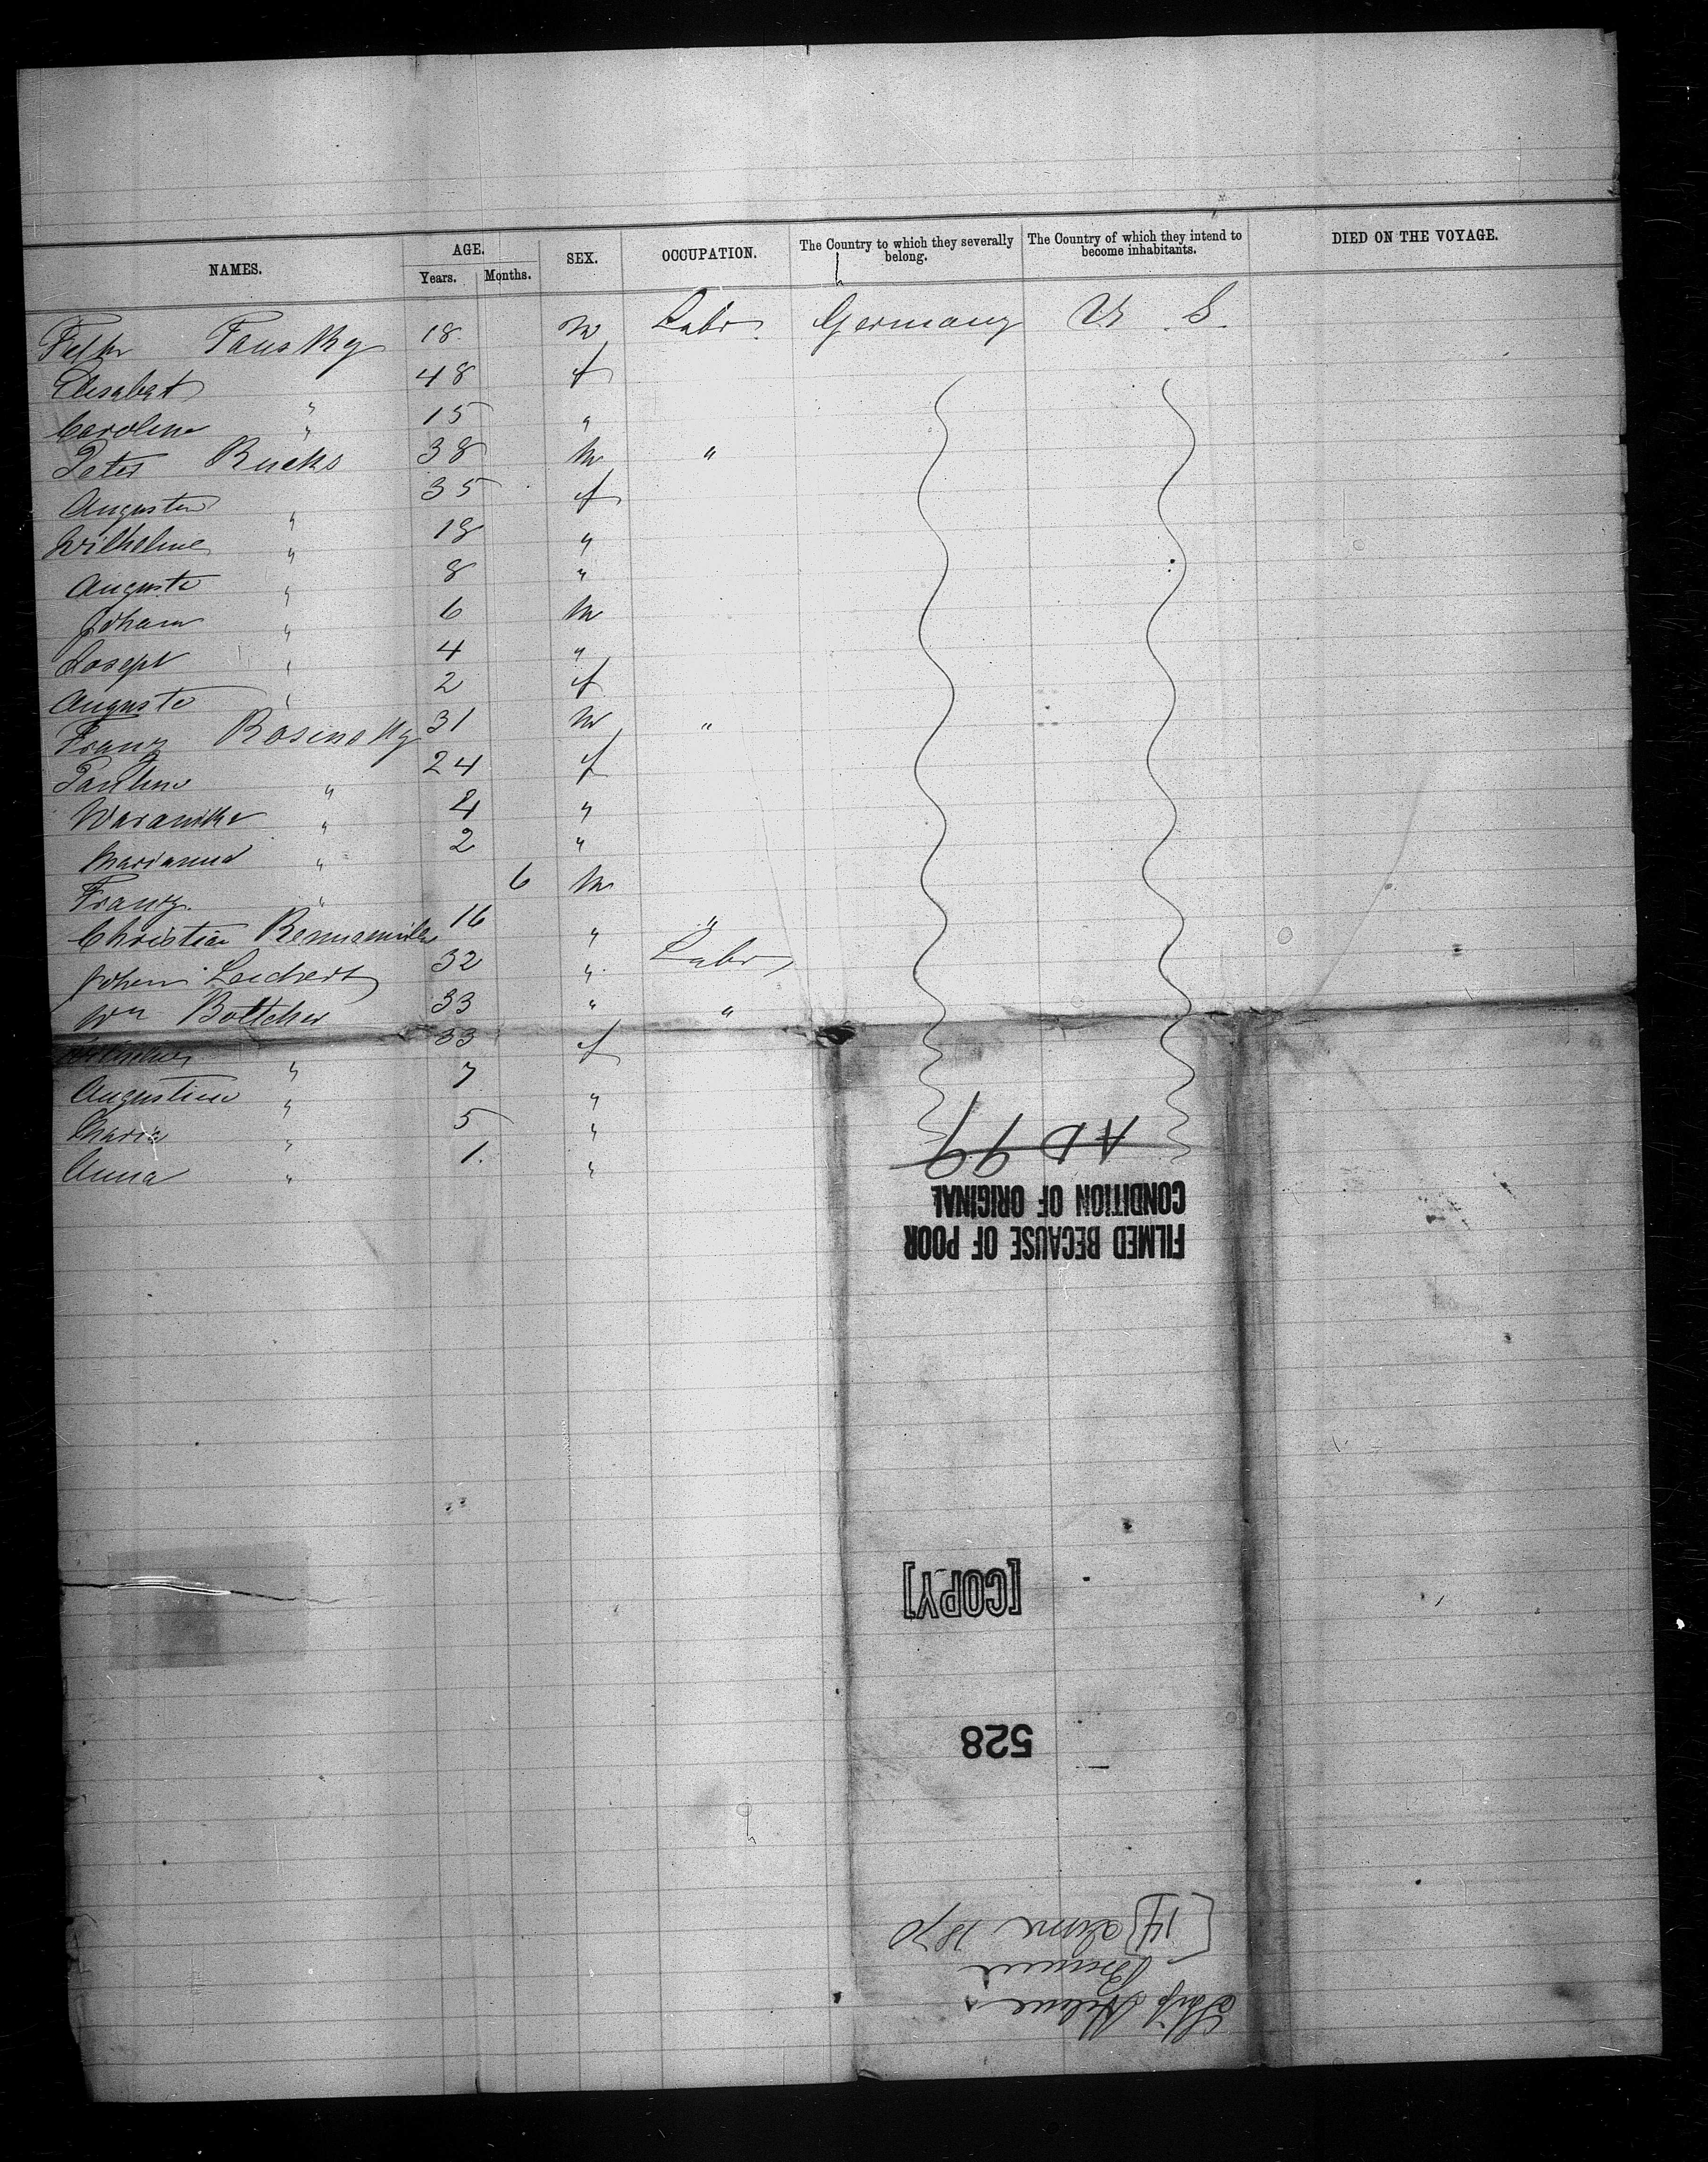 NAMES. AGE. SEX. OCCUPATION. The Country to which they severally belong. The Country of which they intend to become inhabitants. DIED ON THE VOYAGE.
Years. Months.
18. m Labr. Germany U. S.
Elisabet " 48 f
Caroline " 15 "
Peter Rucks 38 m "
Augusta " 35 f
Wilhelmine " 18 "
Auguste " 8 "
Johann " 6 m
Joseph " 4 "
Auguste " 2 f
Franz Rosinsky 31 m "
Pauline " 24 f
" 4 "
Marianna " 2 "
Franz. " 6 m
Christian 16 " "
Johann Leichert 32 " Labr,
Wm Bottcher 33 " "
" 33 f
Augustine " 7 "
Maria " 5 "
Anna " 1. "
AD 99
CONDITION OF ORIGINAL
FILMED BECAUSE OF POOR
[COPY]
528
[14] June 1870
Bremen
Ship Helene